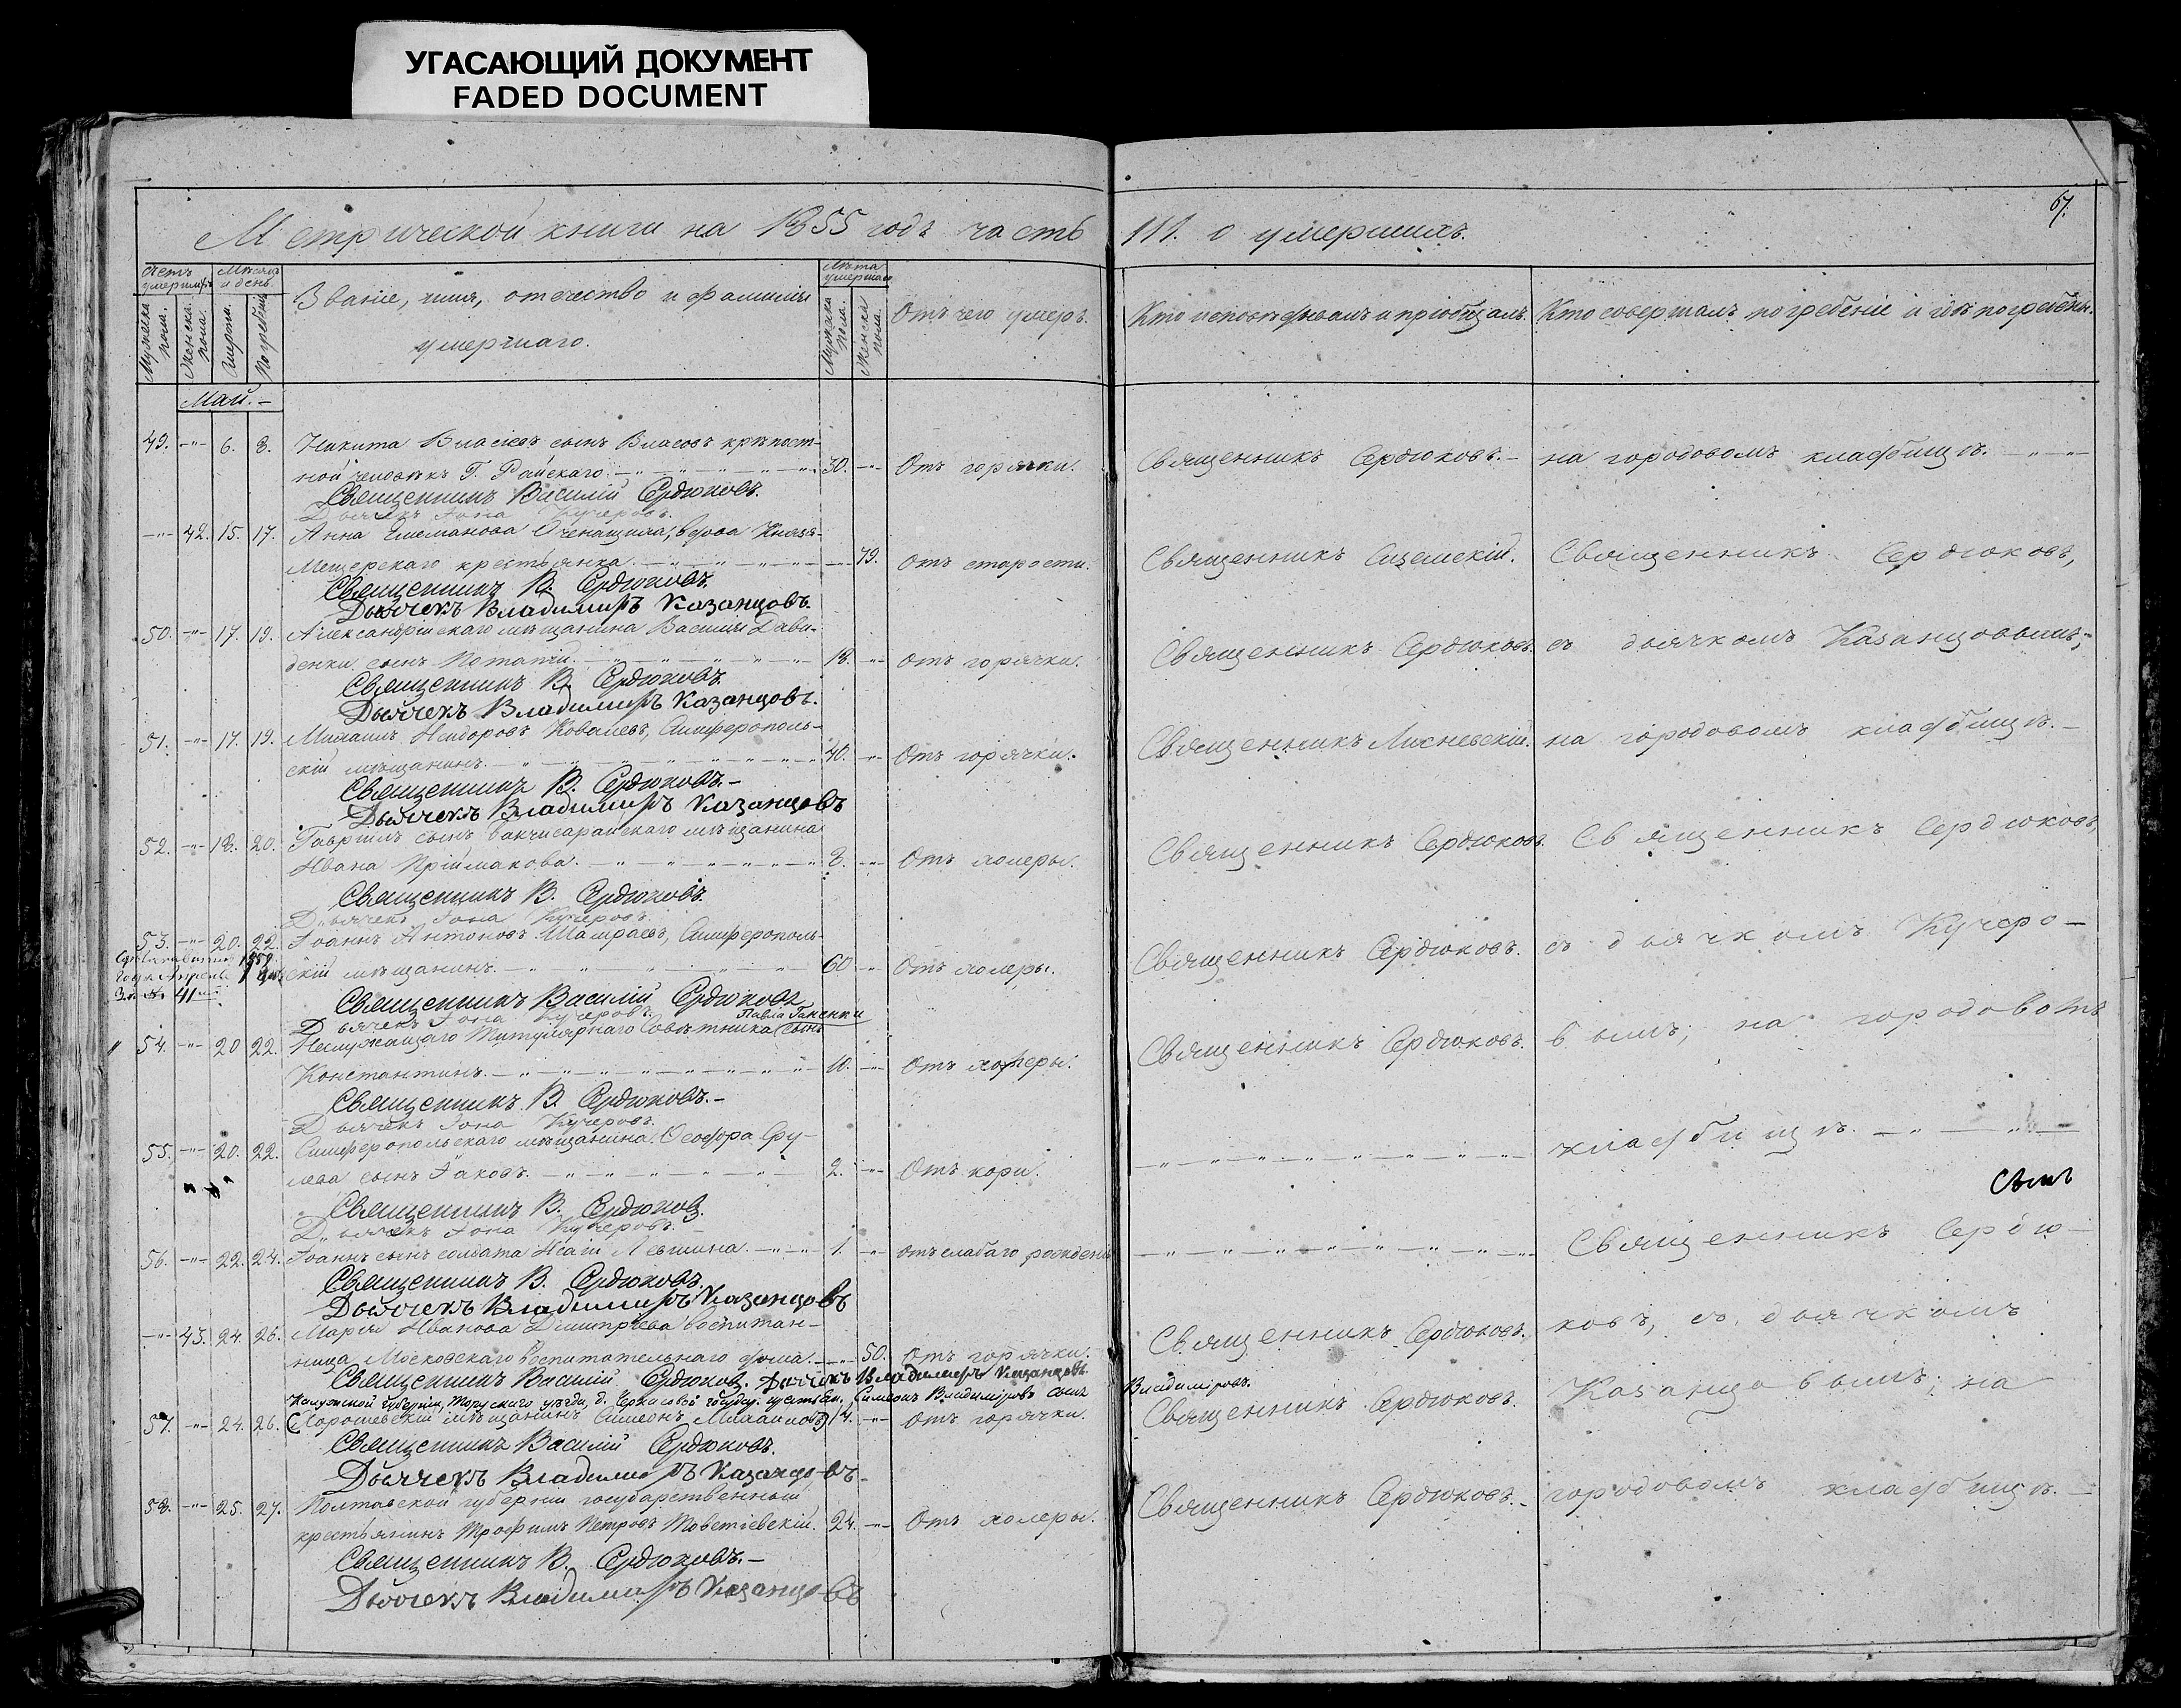 УГАСАЮЩИЙ ДОКУМЕНТ
FADED DOCUMENT
67.
Метрической книги на 1855 годъ часть III. о умершихъ.
Счетъ умершихъ
Мужеска пола.
Женска пола.
Мѣсяцъ и день.
Смерти.
Погребенія
Званіе, имя, отчество и фамилія
умершаго.
Лѣта умершаго
Мужеска пола.
Женска пола.
Отъ чего умеръ.
Кто исповѣдывалъ и пріобщалъ.
Кто совершалъ погребеніе и гдѣ погребены.
Май.-
49. -"- 6. 8. Никита Власіевъ сынъ Власовъ крѣпост-
ной человѣкъ Г. Райскаго. 30. -"- Отъ горячки. Священникъ Сердюковъ.- на городовомъ кладбищѣ.
Священникъ Василій Сердюковъ.
Дьячекъ Іона Кучеровъ.
-"- 42. 15. 17. Анна вдова Князя
Мещерскаго крестьянка. -"- 79. Отъ старости. Священникъ Священникъ Сердюковъ,
Священникъ В. Сердюковъ.
Дьячекъ Владимиръ Казанцовъ.
50. -"- 17. 19. Александрійскаго мѣщанина Василія Дави-
денки сынъ 18. -"- Отъ горячки. Священникъ Сердюковъ. съ дьячкомъ Казанцовымъ,
Священникъ В. Сердюковъ.
Дьячекъ Владимиръ Казанцовъ.
51. -"- 17. 19. Михаилъ Исидоровъ Ковалевъ, Симферополь-
скій мѣщанинъ. 40. -"- Отъ горячки. Священникъ Лихневскій. на городовомъ кладбищѣ.-
Священникъ В. Сердюковъ.-
Дьячекъ Владимиръ Казанцовъ
52. -"- 18. 20. Гавріилъ сынъ Бакчисарайскаго мѣщанина
Ивана Пріймакова. 8. -"- Отъ холеры. Священникъ Сердюковъ. Священникъ Сердюковъ,
Священникъ В. Сердюковъ.
Дьячекъ Іона Кучеровъ.
53. -"- 20. 22. Іоаннъ Антоновъ Шамраевъ, Симферополь-
скій мѣщанинъ. 60 -"- Отъ холеры. Священникъ Сердюковъ. съ дьячкомъ Кучеро-
года Апрѣля
За № 41
Священникъ Василій Сердюковъ
Дьячекъ Іона Кучеровъ.
Павла Ганенки
54. -"- 20 22. Неслужащаго Титулярнаго Совѣтника сынъ
Константинъ. 10. -"- Отъ холеры. Священникъ Сердюковъ. вымъ; на городовомъ
Священникъ В. Сердюковъ.-
Дьячекъ Іона Кучеровъ.
55. -"- 20. 22. Симферопольскаго мѣщанина Ѳеодора
сынъ Іаковъ. 2. -"- Отъ кори. кладбищѣ.
Священникъ В. Сердюковъ.
Дьячекъ Іона Кучеровъ.
56. -"- 22. 24. Іоаннъ сынъ солдата Исаіи Левшина. 1. -"- отъ слабаго рожденія Священникъ Сердю-
Священникъ В. Сердюковъ.
Дьячекъ Владимиръ Казанцовъ
-"- 43. 24. 26. Марія Иванова Димитріева воспитан-
ница Московскаго Воспитательнаго дома. -"- 50. Отъ горячки. Священникъ Сердюковъ. ковъ, съ дьячкомъ
Священникъ Василій Сердюковъ. Дьячекъ Владимиръ Казанцовъ
Калужской губерніи, Тарускаго уѣзда, д. Черкасовой госуд. крестьян. Симеонъ Владиміровъ сынъ Владиміровъ.
57. -"- 24. 26. мѣщанинъ Симеонъ Михаиловъ 14. -"- Отъ горячки. Священникъ Сердюковъ. Казанцовымъ; на
Священникъ Василій Сердюковъ.
Дьячекъ Владимиръ Казанцовъ.
58. -"- 25. 27. Полтавской губерніи государственный
крестьянинъ Трофимъ Петровъ 24. -"- Отъ холеры. Священникъ Сердюковъ.- городовомъ кладбищѣ.-
Священникъ В. Сердюковъ.-
Дьячекъ Владимиръ Казанцовъ